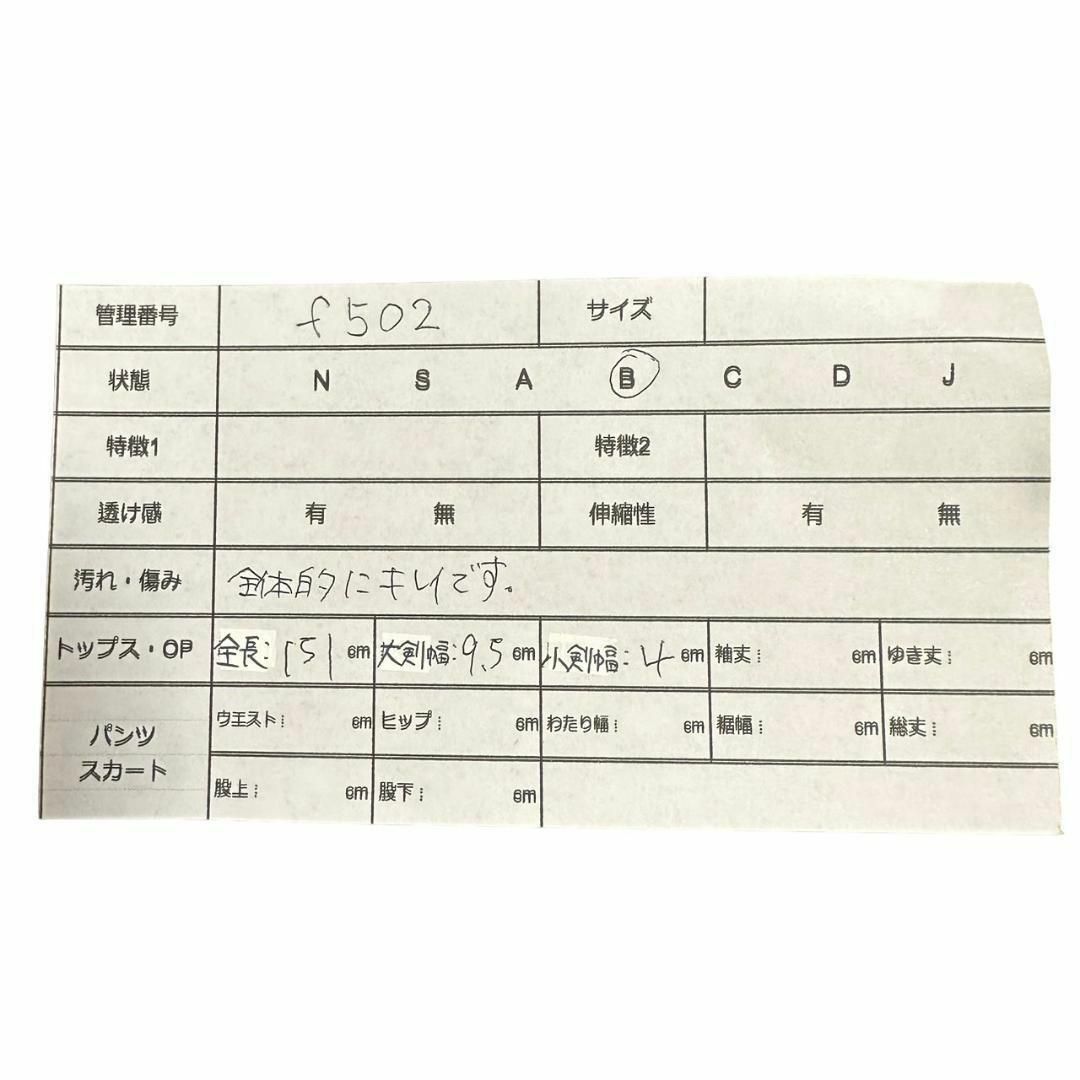 管理番号 f502 サイズ
状態 N S A B C D J
特徴1 特徴2
透け感 有 無 伸縮性 有 無
汚れ・傷み 全体的にキレイです。
トップス・OP 全長:151cm 大剣幅:9.5cm 小剣幅:4cm 袖丈: cm ゆき丈: cm
パンツ スカート
ウエスト: cm ヒップ: cm わたり幅: cm 裾幅: cm 総丈: cm
股上: cm 股下: cm